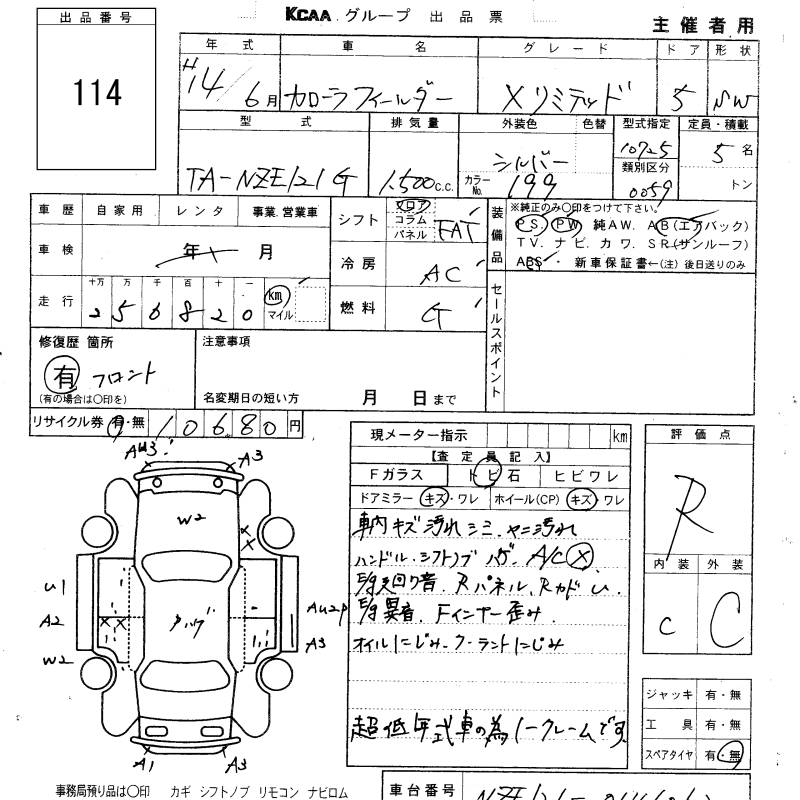 出品番号
114
KCAA グループ 出品票
主催者用
年式 車名 グレード ドア 形状
H14/6月 カローラフィールダー Xリミテッド 5 SW
型式 排気量 外装色 色替 型式指定 定員・積載
TA-NZE121G 1,500c.c. シルバー 10725 5名
カラーNo. 199 類別区分 0059 トン
車歴 自家用 レンタ 事業.営業車
シフト フロア コラム パネル FAT
装備品 ※純正のみ○印をつけて下さい。
PS. PW 純AW. AB(エアバック)
TV. ナビ. カワ. SR(サンルーフ)
ABS・ 新車保証書←(注)後日送りのみ
車検 年 月
冷房 AC
走行 十万 万 千 百 十 一
256820 km マイル
燃料 G
セールスポイント
修復歴 箇所
有 フロント
(有の場合は○印を)
注意事項
名変期日の短い方 月 日まで
リサイクル券 有・無 10680円
現メーター指示 km
【査定員記入】
Fガラス トビ石 ヒビワレ
ドアミラー キズ・ワレ ホイール(CP) キズ・ワレ
車内キズ汚れシミ.ヤニ汚れ
ハンドル.シフトノブ ハゲ. A/C X
E/g 異音. Fインナー歪み.
オイルにじみ.クーラントにじみ
超低年式車の為ノークレームです.
評価点
R
内装 外装
C C
ジャッキ 有・無
工具 有・無
スペアタイヤ 有・無
A3
W2
U1
A2
W2
A3
A1
A3
事務局預り品は○印 カギ シフトノブ リモコン ナビロム
車台番号